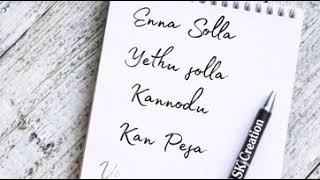 Enna Solla
Yethu solla
Kannodu
Kan Pesa
SK Creation